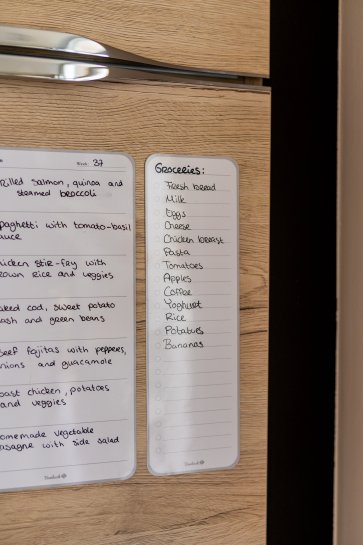 Week: 37
rilled salmon, quinoa and
steamed broccoli
paghetti with tomato-basil
auce
hicken stir-fry with
rown rice and veggies
aked cod, sweet potato
ash and green beans
eef fajitas with peppers,
nions and guacamole
oast chicken, potatoes
and veggies
omemade vegetable
asagne with side salad
Groceries:
Fresh bread
Milk
Eggs
Cheese
Chicken breast
Pasta
Tomatoes
Apples
Coffee
Yoghurt
Rice
Potatoes
Bananas